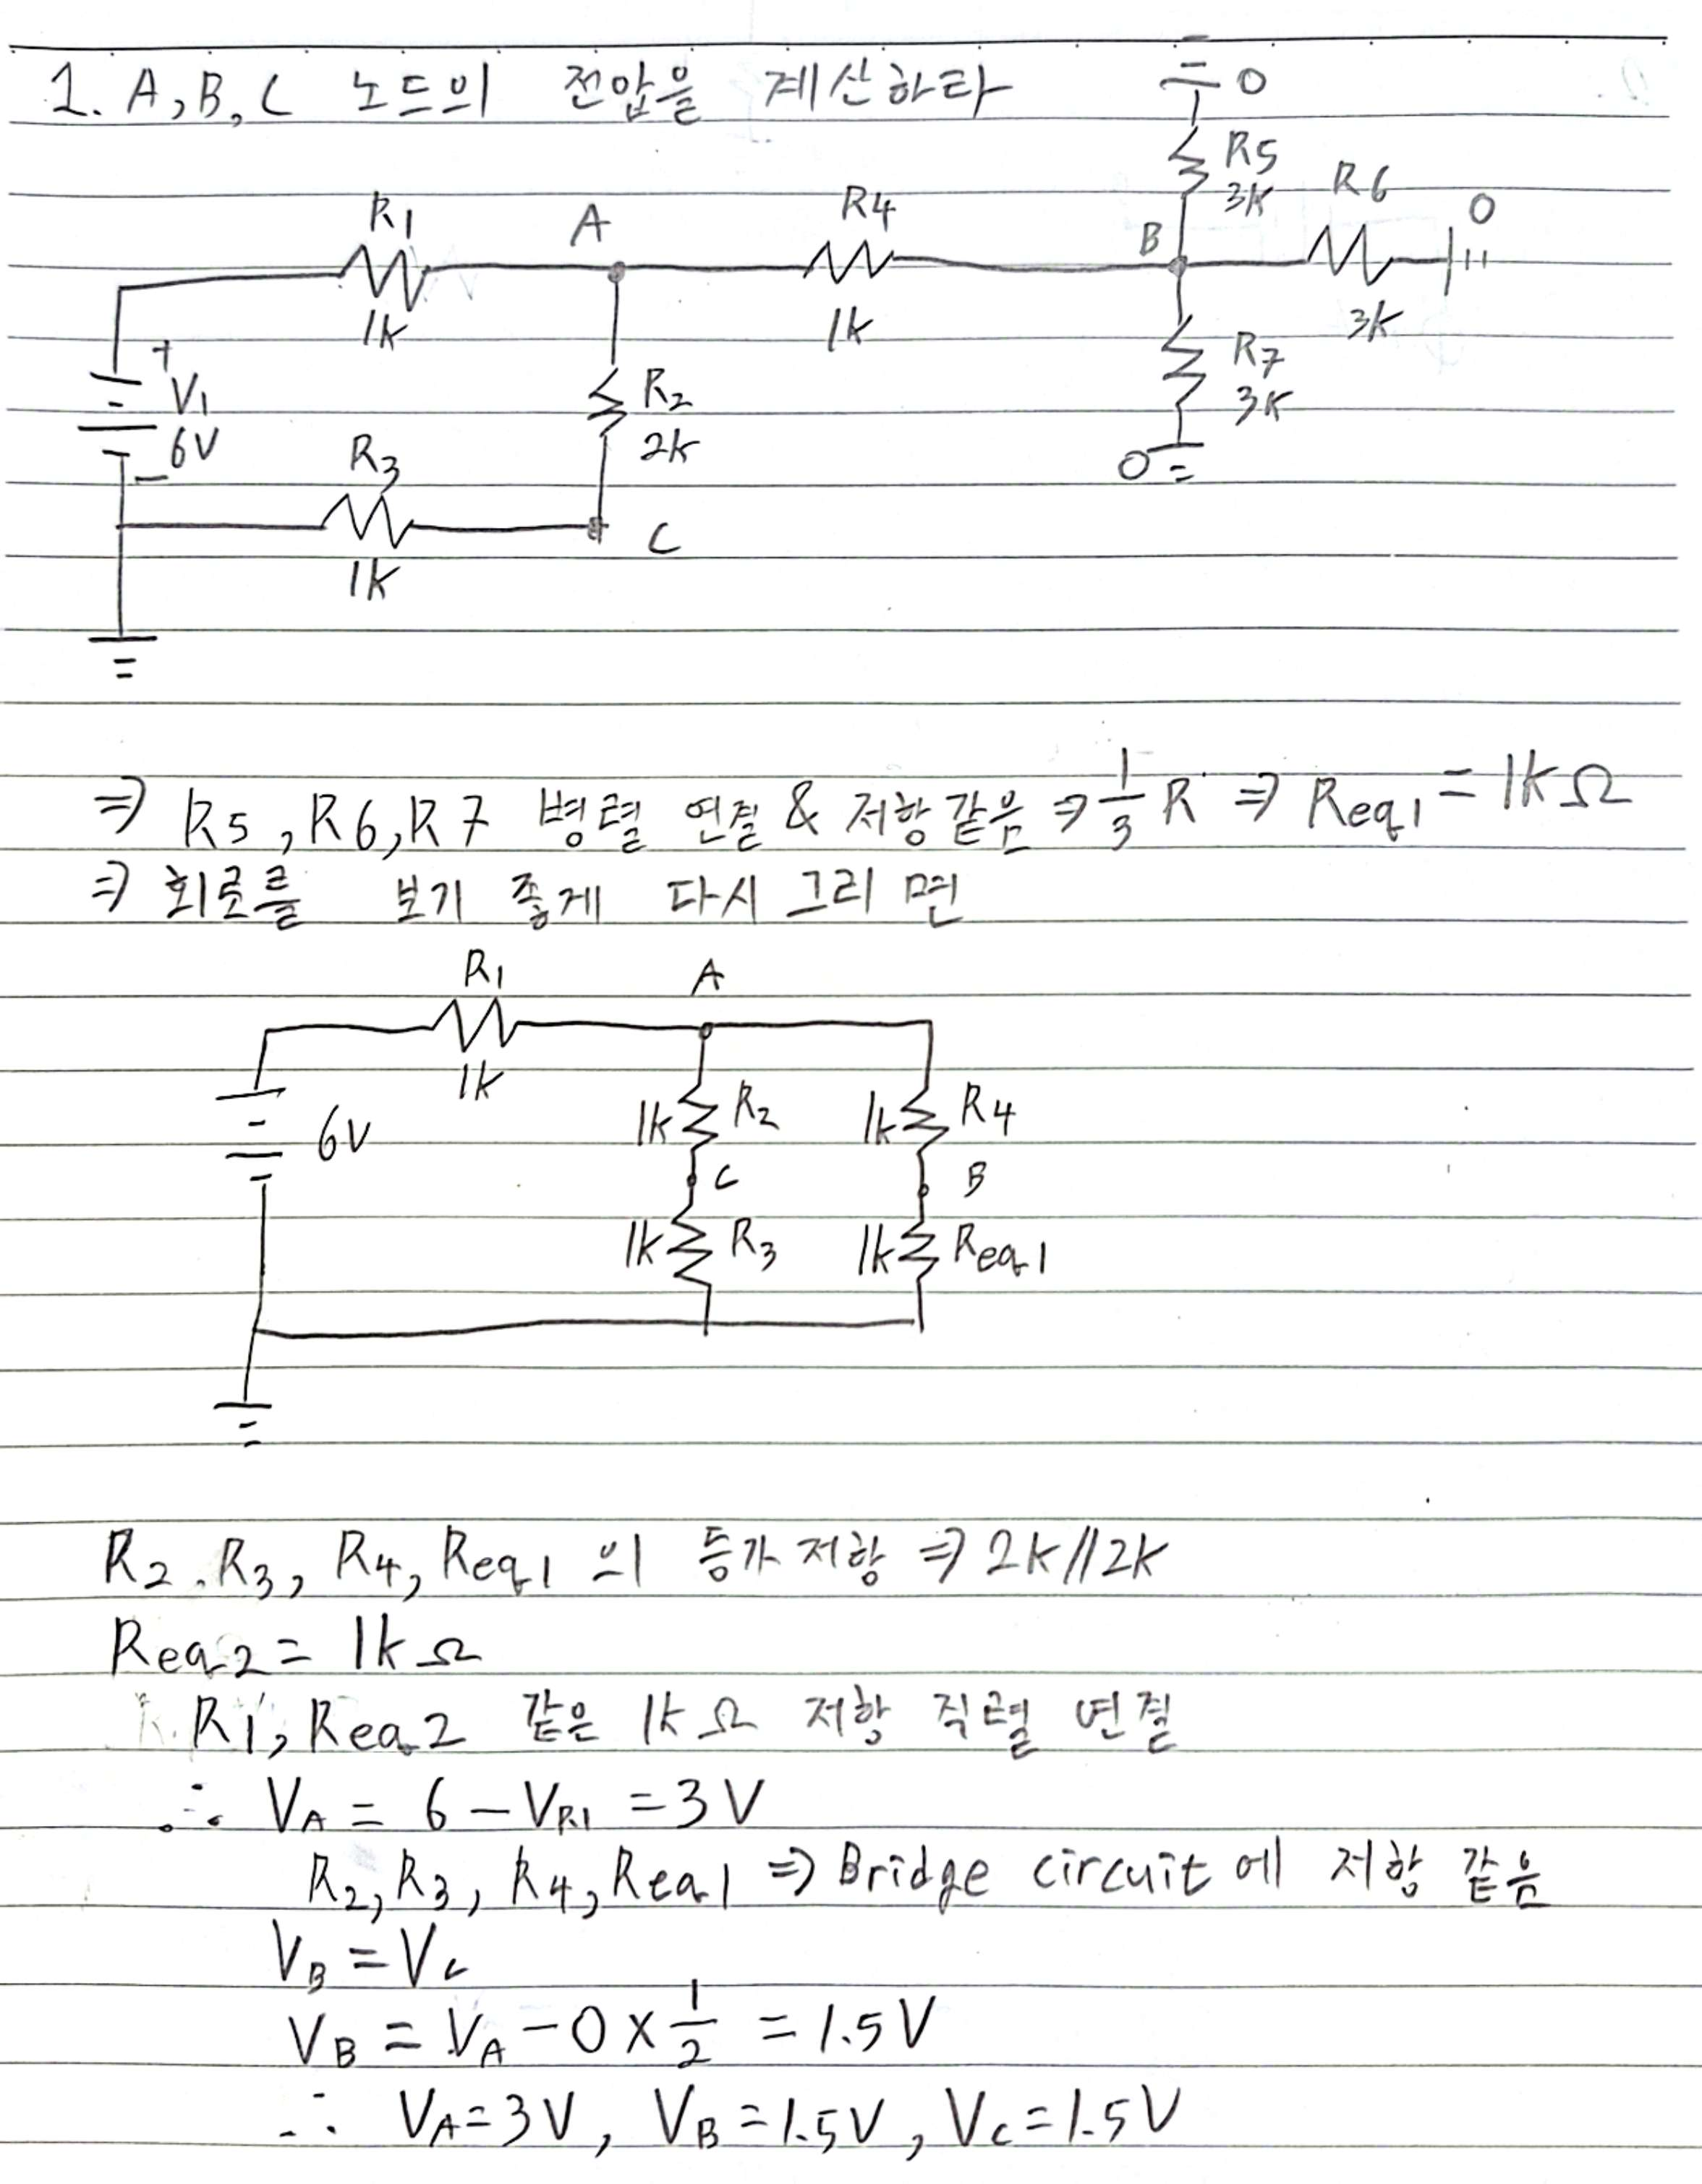 1. A, B, C 노드의 전압을 계산하라
0
R5
3K
R6
0
R1
A
R4
B
1k
1k
3k
+
V1
6V
−
R2
2k
R7
3k
0
R3
C
1k
⇒ R5, R6, R7 병렬 연결 & 저항같음 ⇒ 1/3 R ⇒ Req1 = 1kΩ
⇒ 회로를 보기 좋게 다시 그리면
R1
A
1k
6V
1k R2
1k R4
C
B
1k R3
1k Req1
R2, R3, R4, Req1 의 등가 저항 ⇒ 2k//2k
Req2 = 1kΩ
R1, Req2 같은 1kΩ 저항 직렬 연결
∴ VA = 6 − VR1 = 3V
R2, R3, R4, Req1 ⇒ Bridge circuit에 저항 같음
VB = VC
VB = VA − 0 × 1/2 = 1.5V
∴ VA = 3V, VB = 1.5V, VC = 1.5V